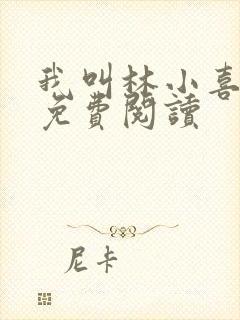 我叫林小喜
免費閱讀
尼卡